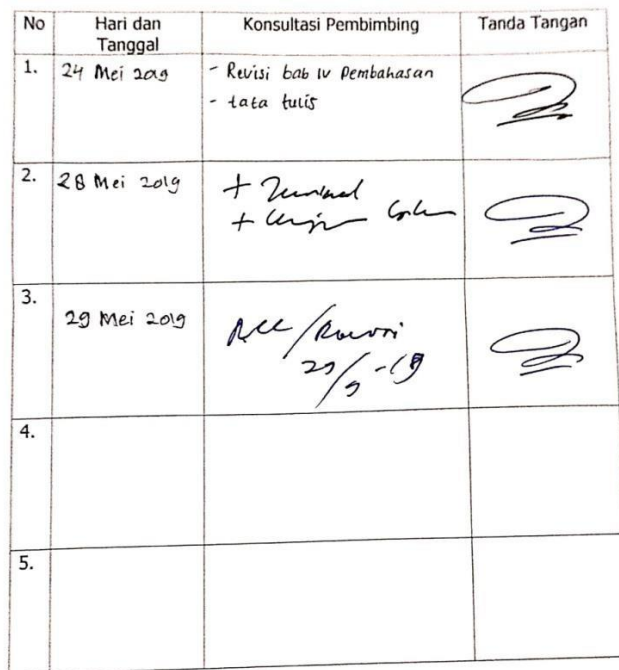 No Hari dan Tanggal Konsultasi Pembimbing Tanda Tangan
1. 24 Mei 2019 - Revisi bab IV Pembahasan
- tata tulis
2. 28 Mei 2019
3.
29 Mei 2019 Acc / Revisi
29/5-19
4.
5.